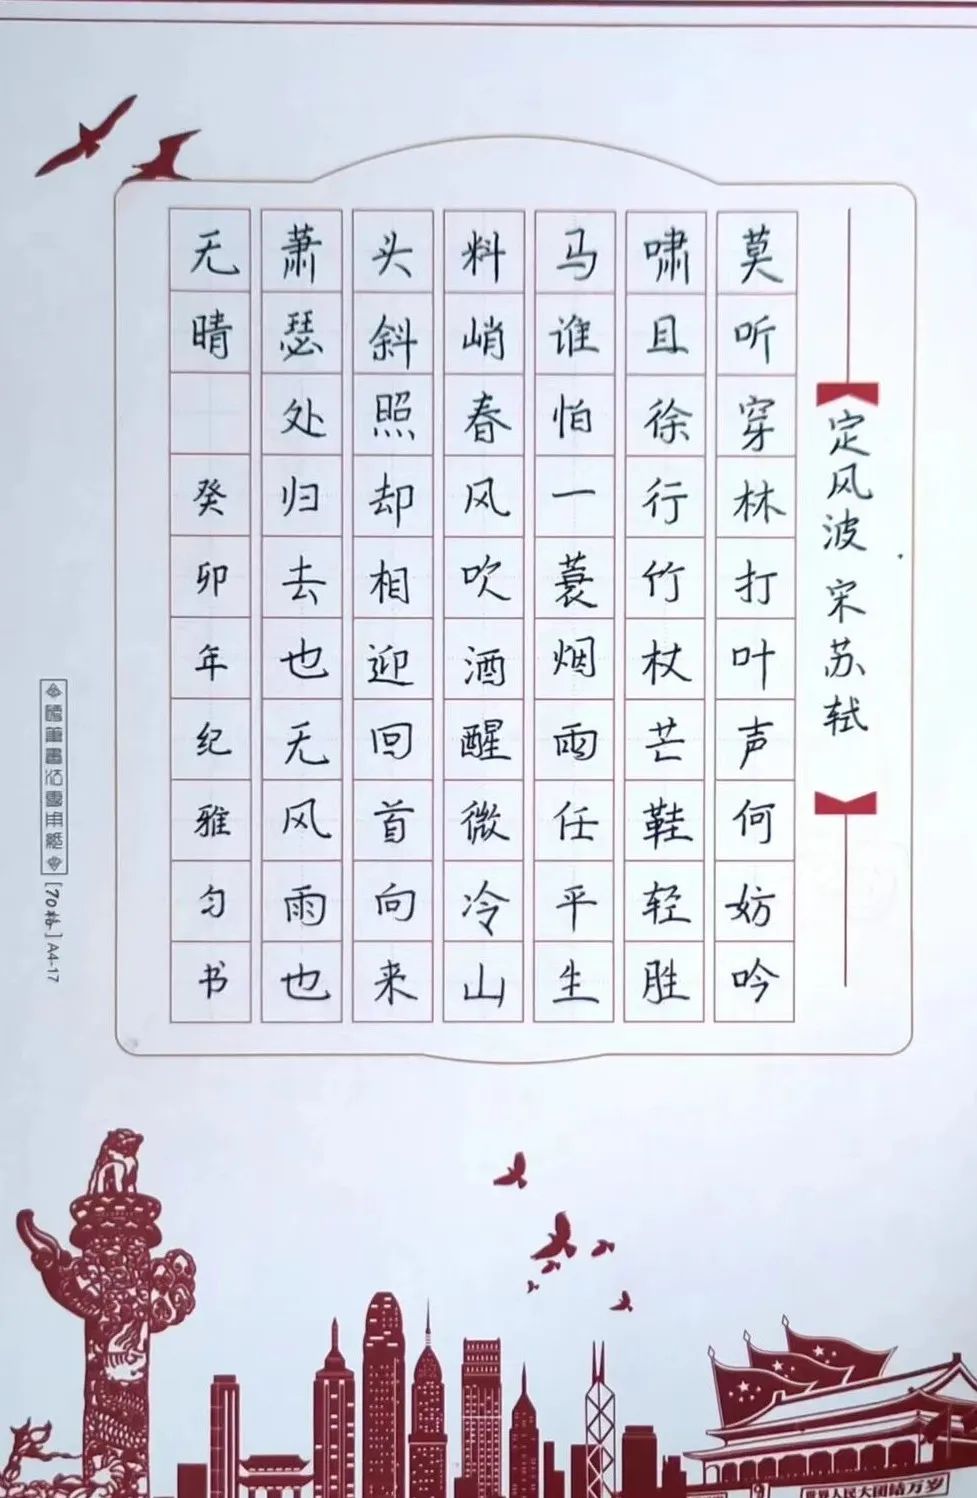 定风波 宋 苏轼
莫听穿林打叶声何妨吟
啸且徐行竹杖芒鞋轻胜
马谁怕一蓑烟雨任平生
料峭春风吹酒醒微冷山
头斜照却相迎回首向来
萧瑟处归去也无风雨也
无晴 癸卯年纪雅匀书
[70格] A4-17
世界人民大团结万岁